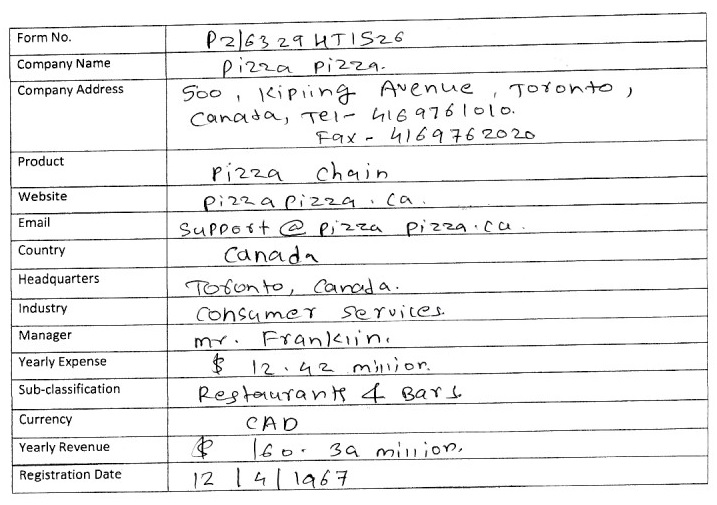 Form No. P216329HT1S26
Company Name Pizza Pizza.
Company Address 500, Kipling Avenue, Toronto,
Canada, Tel- 4169761010.
Fax - 4169762020
Product Pizza Chain
Website Pizzapizza.ca.
Email Support@pizza pizza.ca.
Country Canada
Headquarters Toronto, Canada.
Industry Consumer Services.
Manager mr. Franklin.
Yearly Expense $ 12.42 million.
Sub-classification Restaurants & Bars.
Currency CAD
Yearly Revenue $ 160.39 million.
Registration Date 12/4/1967